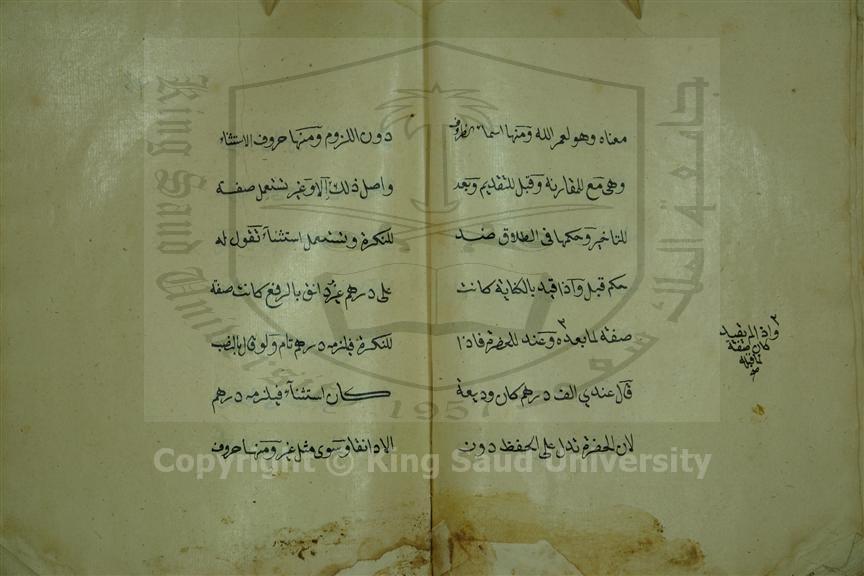 معناه وهو لعمر الله ومنها اسماء الظروف
وهى مع للمقارنة وقبل للتقديم وبعد
للتاخير وحكمها فى الطلاق ضد
حكم قبل واذا قيد بالكناية كانت
صفة لما بعده ٣ وعند للحضرة فاذا
قال عندي الف درهم كان وديعة
لان الحضرة تدل على الحفظ دون
٣ واذا لم يقيد
كان صفة
لما قبله
صح
دون اللزوم ومنها حروف الاستثناء
واصل ذلك الا وغير تستعمل صفة
للنكرة وتستعمل استثناء تقول له
على درهم غير دانق بالرفع كانت صفة
للنكرة فيلزمه درهم تام ولو قال بالنصب
كان استثناء فيلزمه درهم
الا دانقا وسوى مثل غير ومنها حروف
King Saud University
1957
Copyright © King Saud University